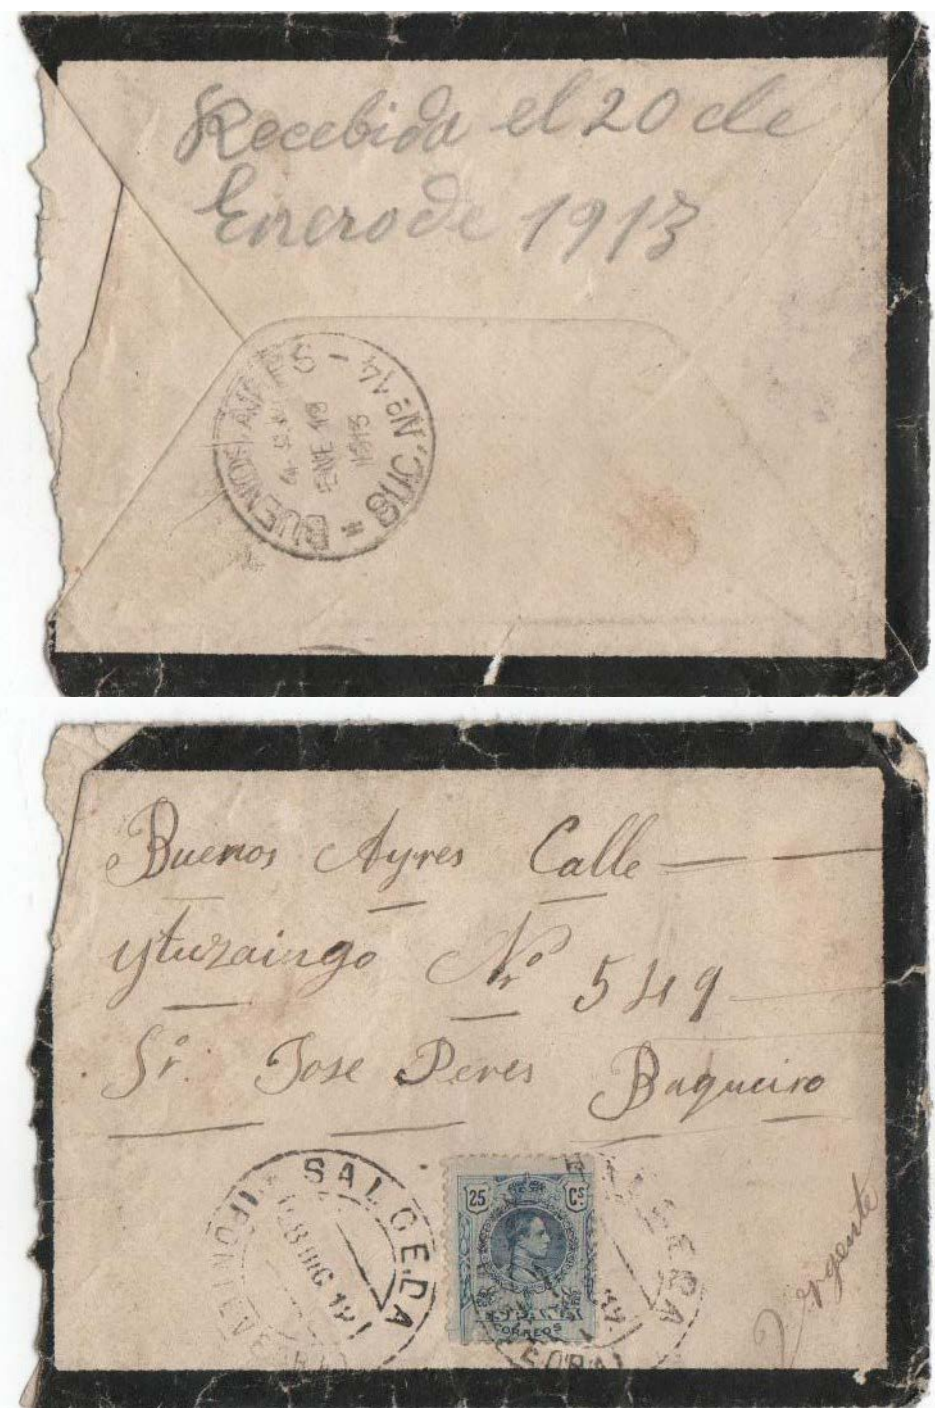 Recebida el 20 de
Enero de 1913
BUENOS AIRES
ENE 18
1913
SUC. No 14
Buenos Ayres Calle
Yturaingo Nro 549
Sr. Jose Peres Baqueiro
SALCEDA
PONTEVEDRA
28 DIC 12
25 Cs
CORREOS
Vrgente